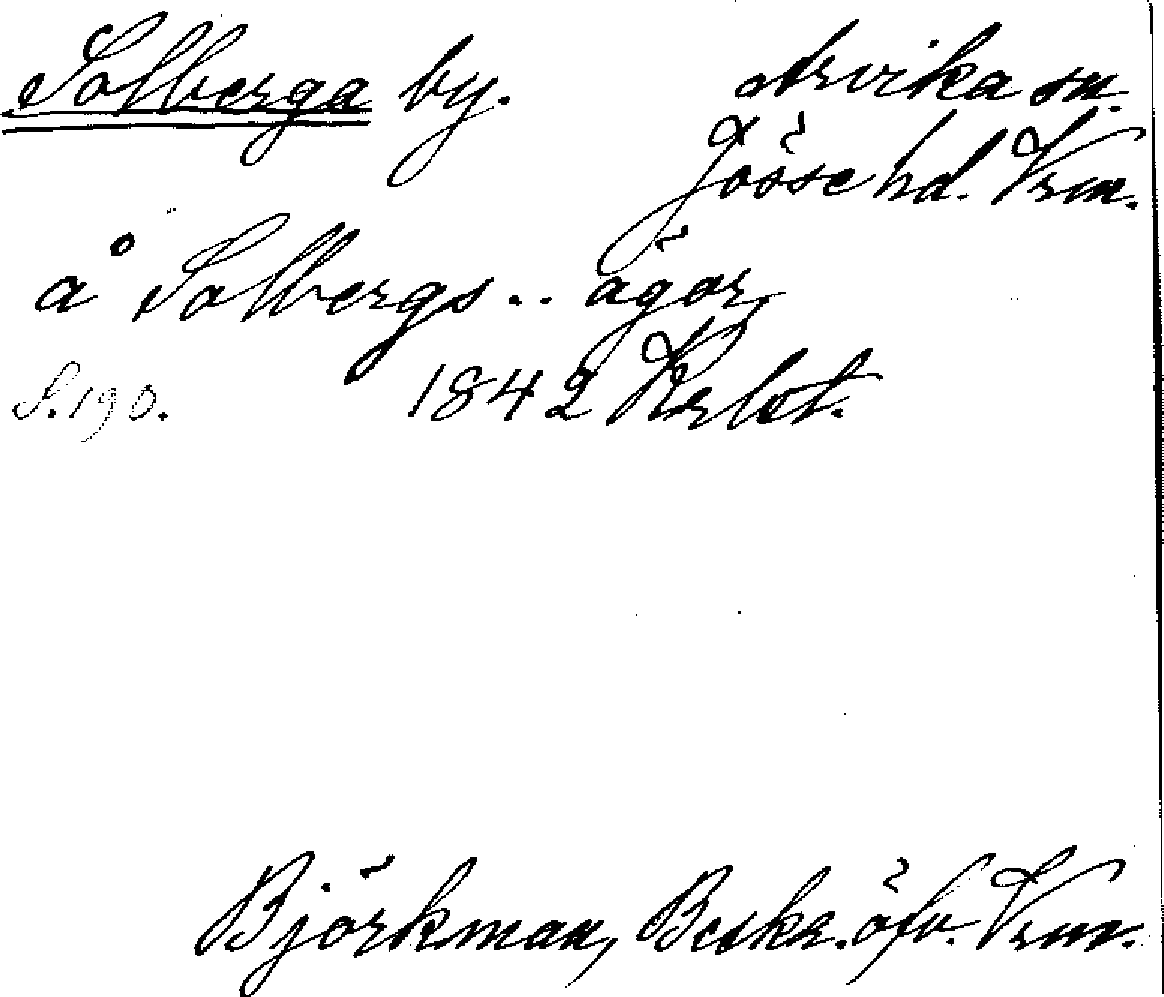 Solberga by. Arvika sn.
Jösse hd. Vrm.
å Solbergs .. ägor
S. 190. 1842
Björkman, Beskr. öfv. Vrm.